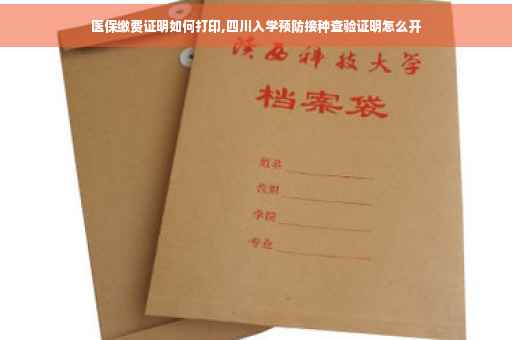 医保缴费证明如何打印,四川入学预防接种查验证明怎么开
陕西科技大学
档案袋
姓名
学院
专业